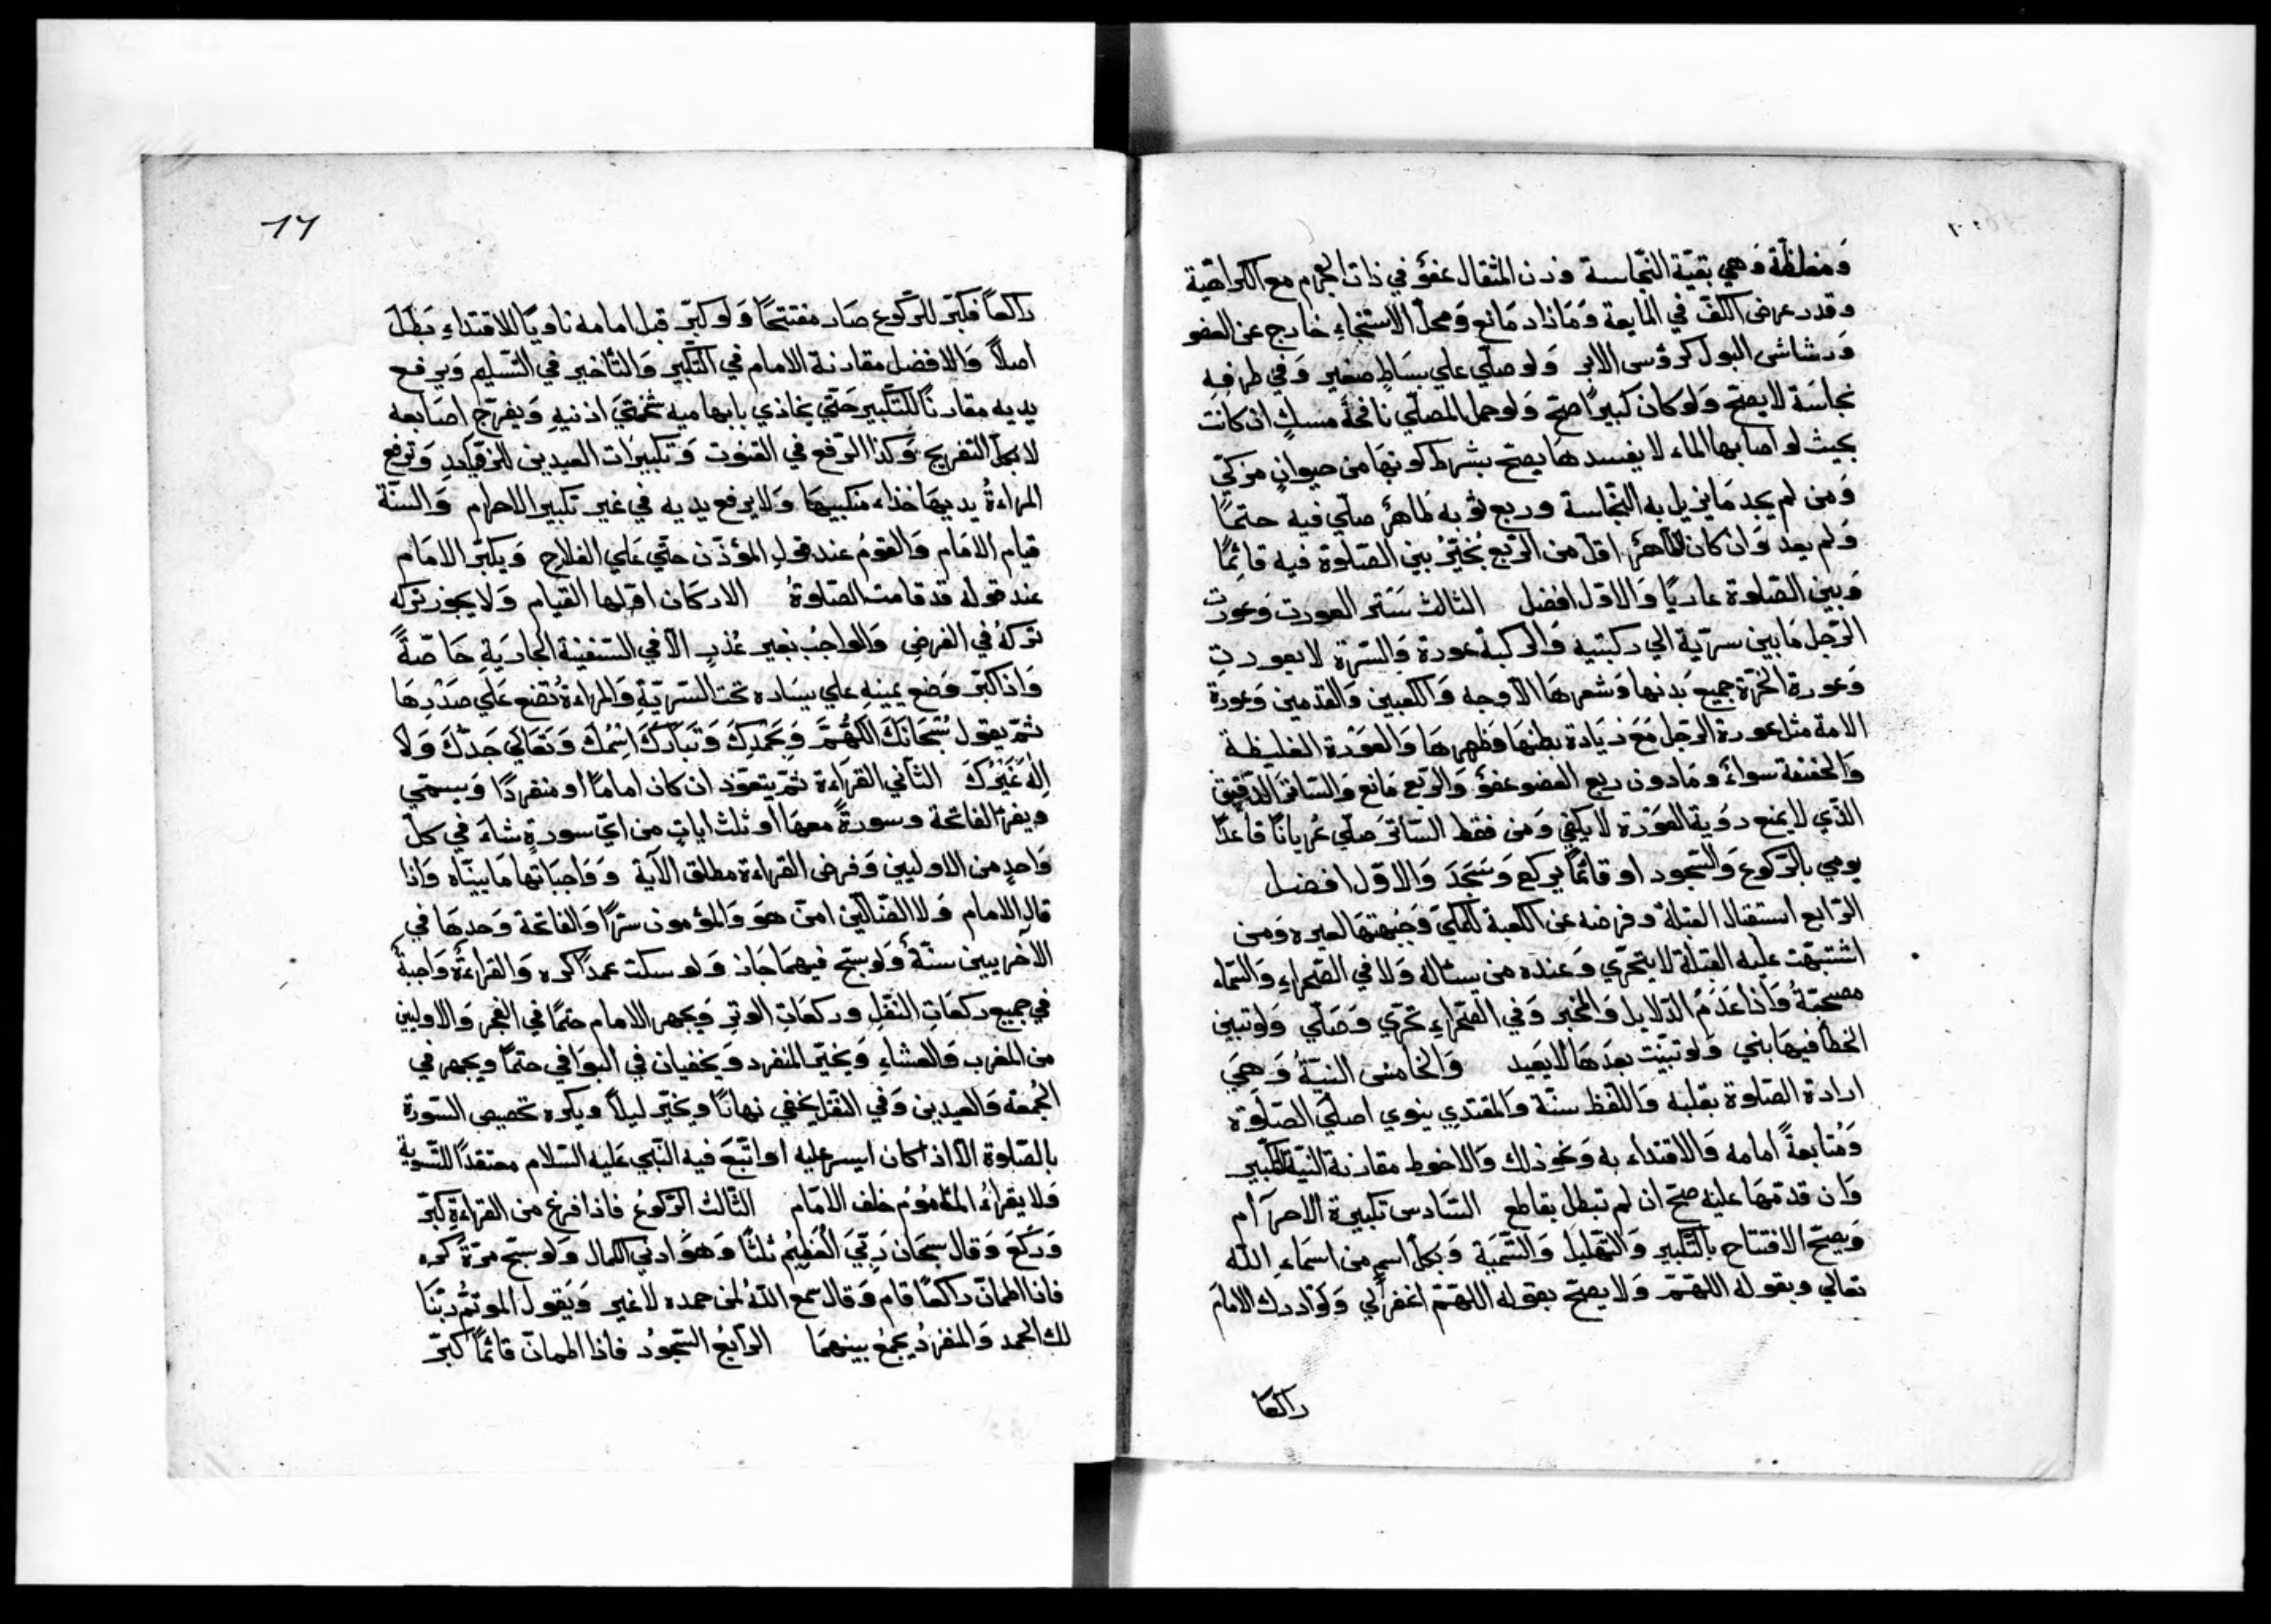 وَمغلظّة وَهي بقيّة النّجاسة وزن المثقال عفوٌ في ذات الجرم مع الكراهيّة
وقدر عرض الكفّ في المايعة وَمَا زاد مَانع وَمحلّ الاستنجاءِ خارج عن العفو
وَرشاش البول كرؤس الابر وَلو صلّي علي بسَاطٍ صغير وَفي طرفه
نجاسَة لا يصحّ وَلو كان كبيرًا صحّ وَلو حمل المصلّي نافجة مسكٍ ان كانت
بحيث لو اصابها الماء لا يفسدهَا يصحّ بشرط كونهَا من حيوانٍ مزكّي
وَمن لم يجد مَا يزيل به النّجاسة وربع ثوبه طاهرٌ صلّي فيه حتمًا
وَلم يعد وَان كان الطّاهرُ اقلّ من الرّبع يُخيّرُ بين الصّلوة فيه قائِمًا
وَبين الصّلوة عاريًا وَالاوّل افضل الثالث سَتر العورت وَعورت
الرّجل مَا بين سرّته الي ركبتيه وَالركبة عورة وَالسّرّة لا بعورتٍ
وَعورة الحُرّة جميع بَدنها وَشعرهَا الّا وجه وَالكعبين وَالقدمين وَعورة
الامة مثل عورة الرّجل مَعَ زيَادة بطنهَا وظهرهَا وَالعَوْرة الغليظة
وَالخفيفة سواءٌ ومَا دون ربع العضو عفوٌ وَالرّبع مَانع وَالسّاتر الدّقيق
الّذي لا يمنع رؤية العَوْرة لا يكفي وَمن فقط السّاترَ صلّي عُريانًا قاعدًا
يومي بالرّكوع وَالسّجود او قائمًا يركع وَسَجَدَ وَالاوّل افضل
الرّابع استقبال القبلة وفرضه عَين الكعبة للمكيّ وَجِهتهَا لغيره وَمن
اشتبهت عليه القبلة لا يتحرّي وَعنده من يسئاله وَلا في الصّحراءِ وَالسّماء
مصحيّةٌ وَاذا عَدَمَ الدّلايل وَالمخبر وَفي الصّحراءِ تحرّي وَصَلّي وَلو تبيّن
الخطأ فيهَا بني وَلو تبيّنت بعدَهَا لا يعيد وَالخامس النيّةُ وَهِيَ
ارادة الصّلوة بقلبه وَاللّفظ سنّة وَالمقتدي ينوي اصليَ الصّلوة
وَمُتابعةً امامه وَالاقتداء به وَنحو ذلك وَالاحوط مقارنة النّيّة للتّكبير
وَان قدّمهَا عليه صحّ ان لم تبطل بقاطع السّادس تكبيرة الاحرآم
وَيصحّ الافتتاح بالتّكبير وَالتّهليل وَالتّسمَية وَبكلّ اسمٍ من اسمَاءِ اللّه
تعالي وبقوله اللّهمّ وَلا يصحّ بقوله اللّهمّ اغفرلي وَلَو ادرك الامامَ
راكعًا
17
راكعًا فكبّر للرّكوع صَار مفتتحًا وَلو كبّر قبل امامه ناويًا للاقتداءِ بَطَلَ
اصلاً وَالافضل مقارنة الامام في التّكبير وَالتّأخير في التّسليم وَيرفع
يديه مقارنًا للتّكبير حَتّي يحاذي بابهاميه شحمتَي اذنيهِ وَيفرّج اصَابعه
لا كلّ التفريج وَكذا الرّفع في القنوت وَتكبيرَات العيدين للزّوَآيدِ وَترفع
المرَاءةُ يديهَا حذاء منكبيهَا وَلا يرفع يديه في غير تكبير الاحرام وَالسنّة
قيام الامَام وَالقومُ عند قولِ المؤذّن حيّ عَلي الفلاح وَيكبّر الامَام
عند قوله قد قامت الصّلوةُ الاركان اوّلها القيام وَلا يجوز تركه
تركهُ في الفرض وَالواجبُ بغير عُذرٍ الّا في السّفينة الجاريَةِ خَاصّةً
وَاذا كبّر وَضع يمينهِ علي يسَاره تحت السّرّيةِ وَالمرَاءةُ تضع عَلَي صَدْرِهَا
ثمّ يقول سُبْحَانَكَ اللّهُمَّ وَبِحَمْدِكَ وَتَبَارَكَ اسْمُكَ وَتَعَالَي جَدُّكَ وَلَا
اِلٰهَ غَيْرُكَ الثّاني القرَاءة ثمّ يتعوّذ ان كان امامًا او منفردًا وَيسمّي
ويقرءُ الفاتحة وسورةً معهَا او ثلث اياتٍ من ايّ سورةٍ شاءَ في كلّ
وَاحدٍ من الاوليين وَفرض القراءة مطلق الآية وَوَاجبَاتها مَا بيّنّاه وَاذا
قال الامام وَلا الضّالّين امّنّ هوَ وَالمؤمون سرًّا وَالفاتحة وَحدهَا في
الآخريين سنّةٌ وَلو سبّح فيهمَا جَاز وَلو سكت عمدًا كره وَالقراءةُ وَاجبةٌ
في جميع ركعَاتِ النّفلِ وركعَات الوترِ وَيجهر الامام حتمًا في الفجر وَالاوليين
من المغرب وَالعشاءِ وَيخيّر المنفرد وَيخفيان في البوَاقي حتمًا ويجهر في
الجُمعة وَالعيدين وَفي النّفل يخفي نهارًا ويخيّر ليلاً ويكره تخصيص السّورة
بالصّلوة الّا اذا كان ايسر عليه او اتّبعَ فيه النّبي عَليه السّلام معتقدًا للتّسوية
وَلا يقراءُ المأمومُ خلف الامَام الثّالث الرّكوعُ فاذا فرغ من القراءةِ كبّر
وَرَكعَ وَقال سبحَان رَبِّيَ الْعَظيم ثلثًا وَهوَ ادني الكمال وَلو سبّح مرّةً كره
فاذا اطمانّ راكعًا قام وَقال سمع اللّه لمن حمده لا غير وَيَقول الموتمُّ ربّنَا
لك الحمد وَالمنفردُ يجمعُ بينهمَا الرّابعُ السّجودُ فاذا اطمانّ قائمًا كبّر